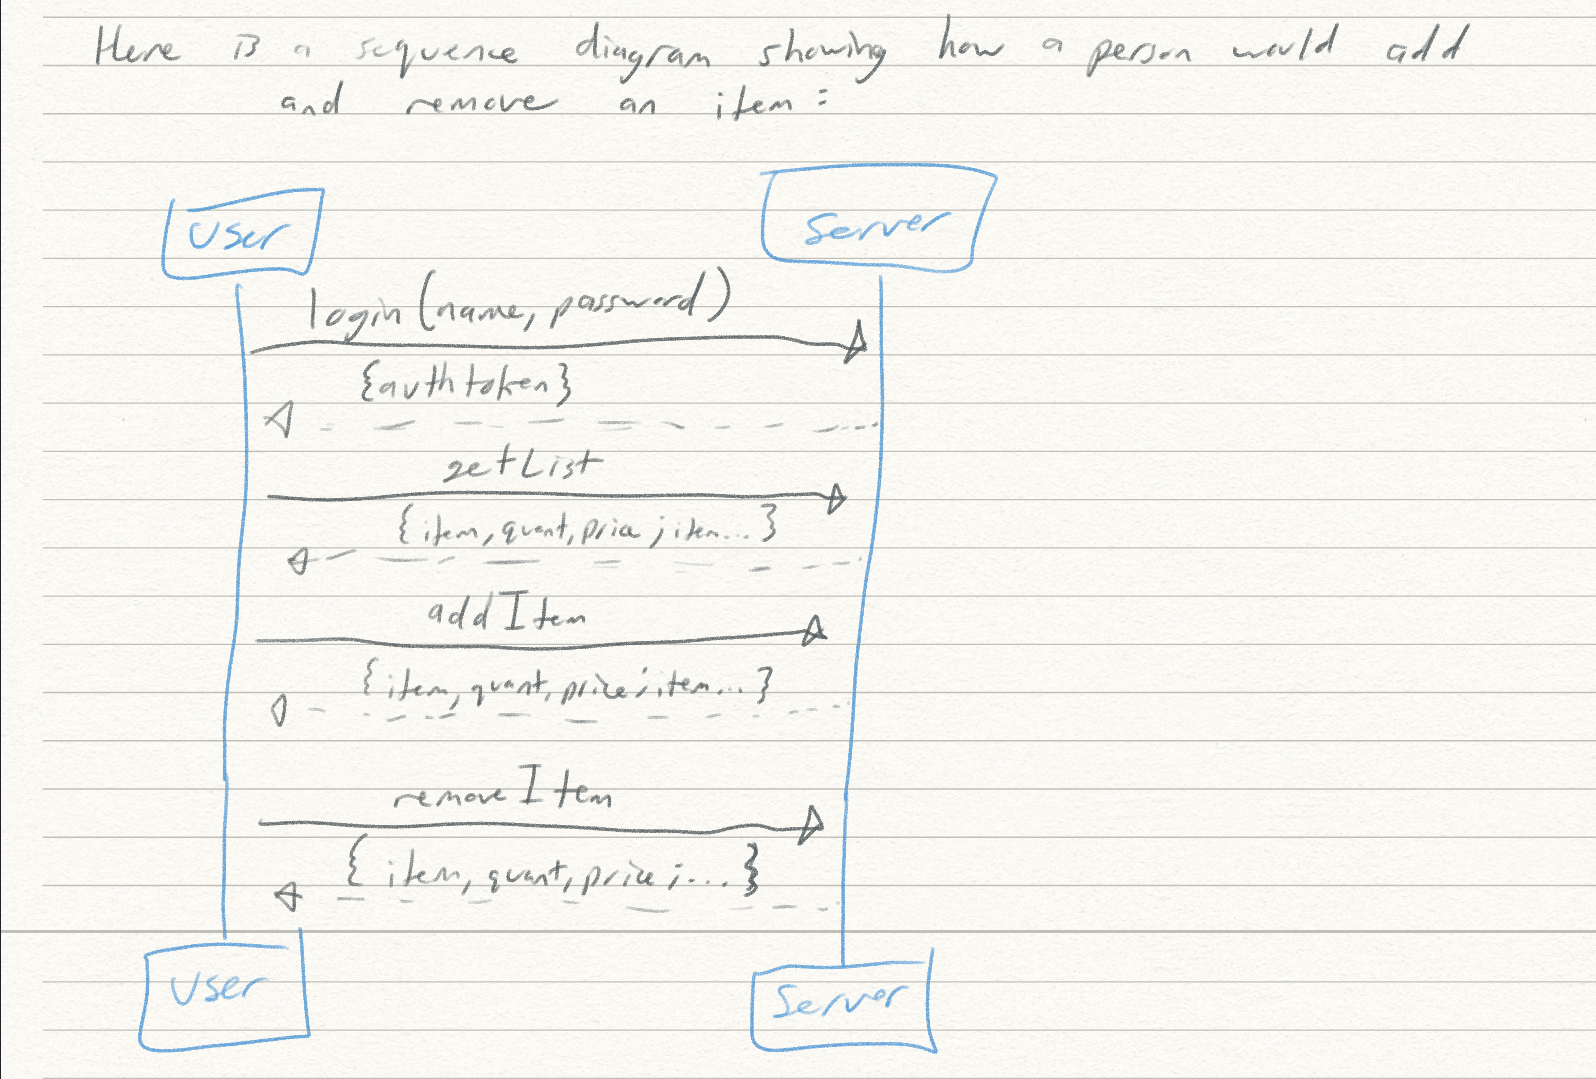 Here is a sequence diagram showing how a person would add
and remove an item:
User
Server
login(name, password)
{authtoken}
getList
{item, quant, price; item...}
addItem
{item, quant, price; item...}
removeItem
{item, quant, price; ...}
User
Server